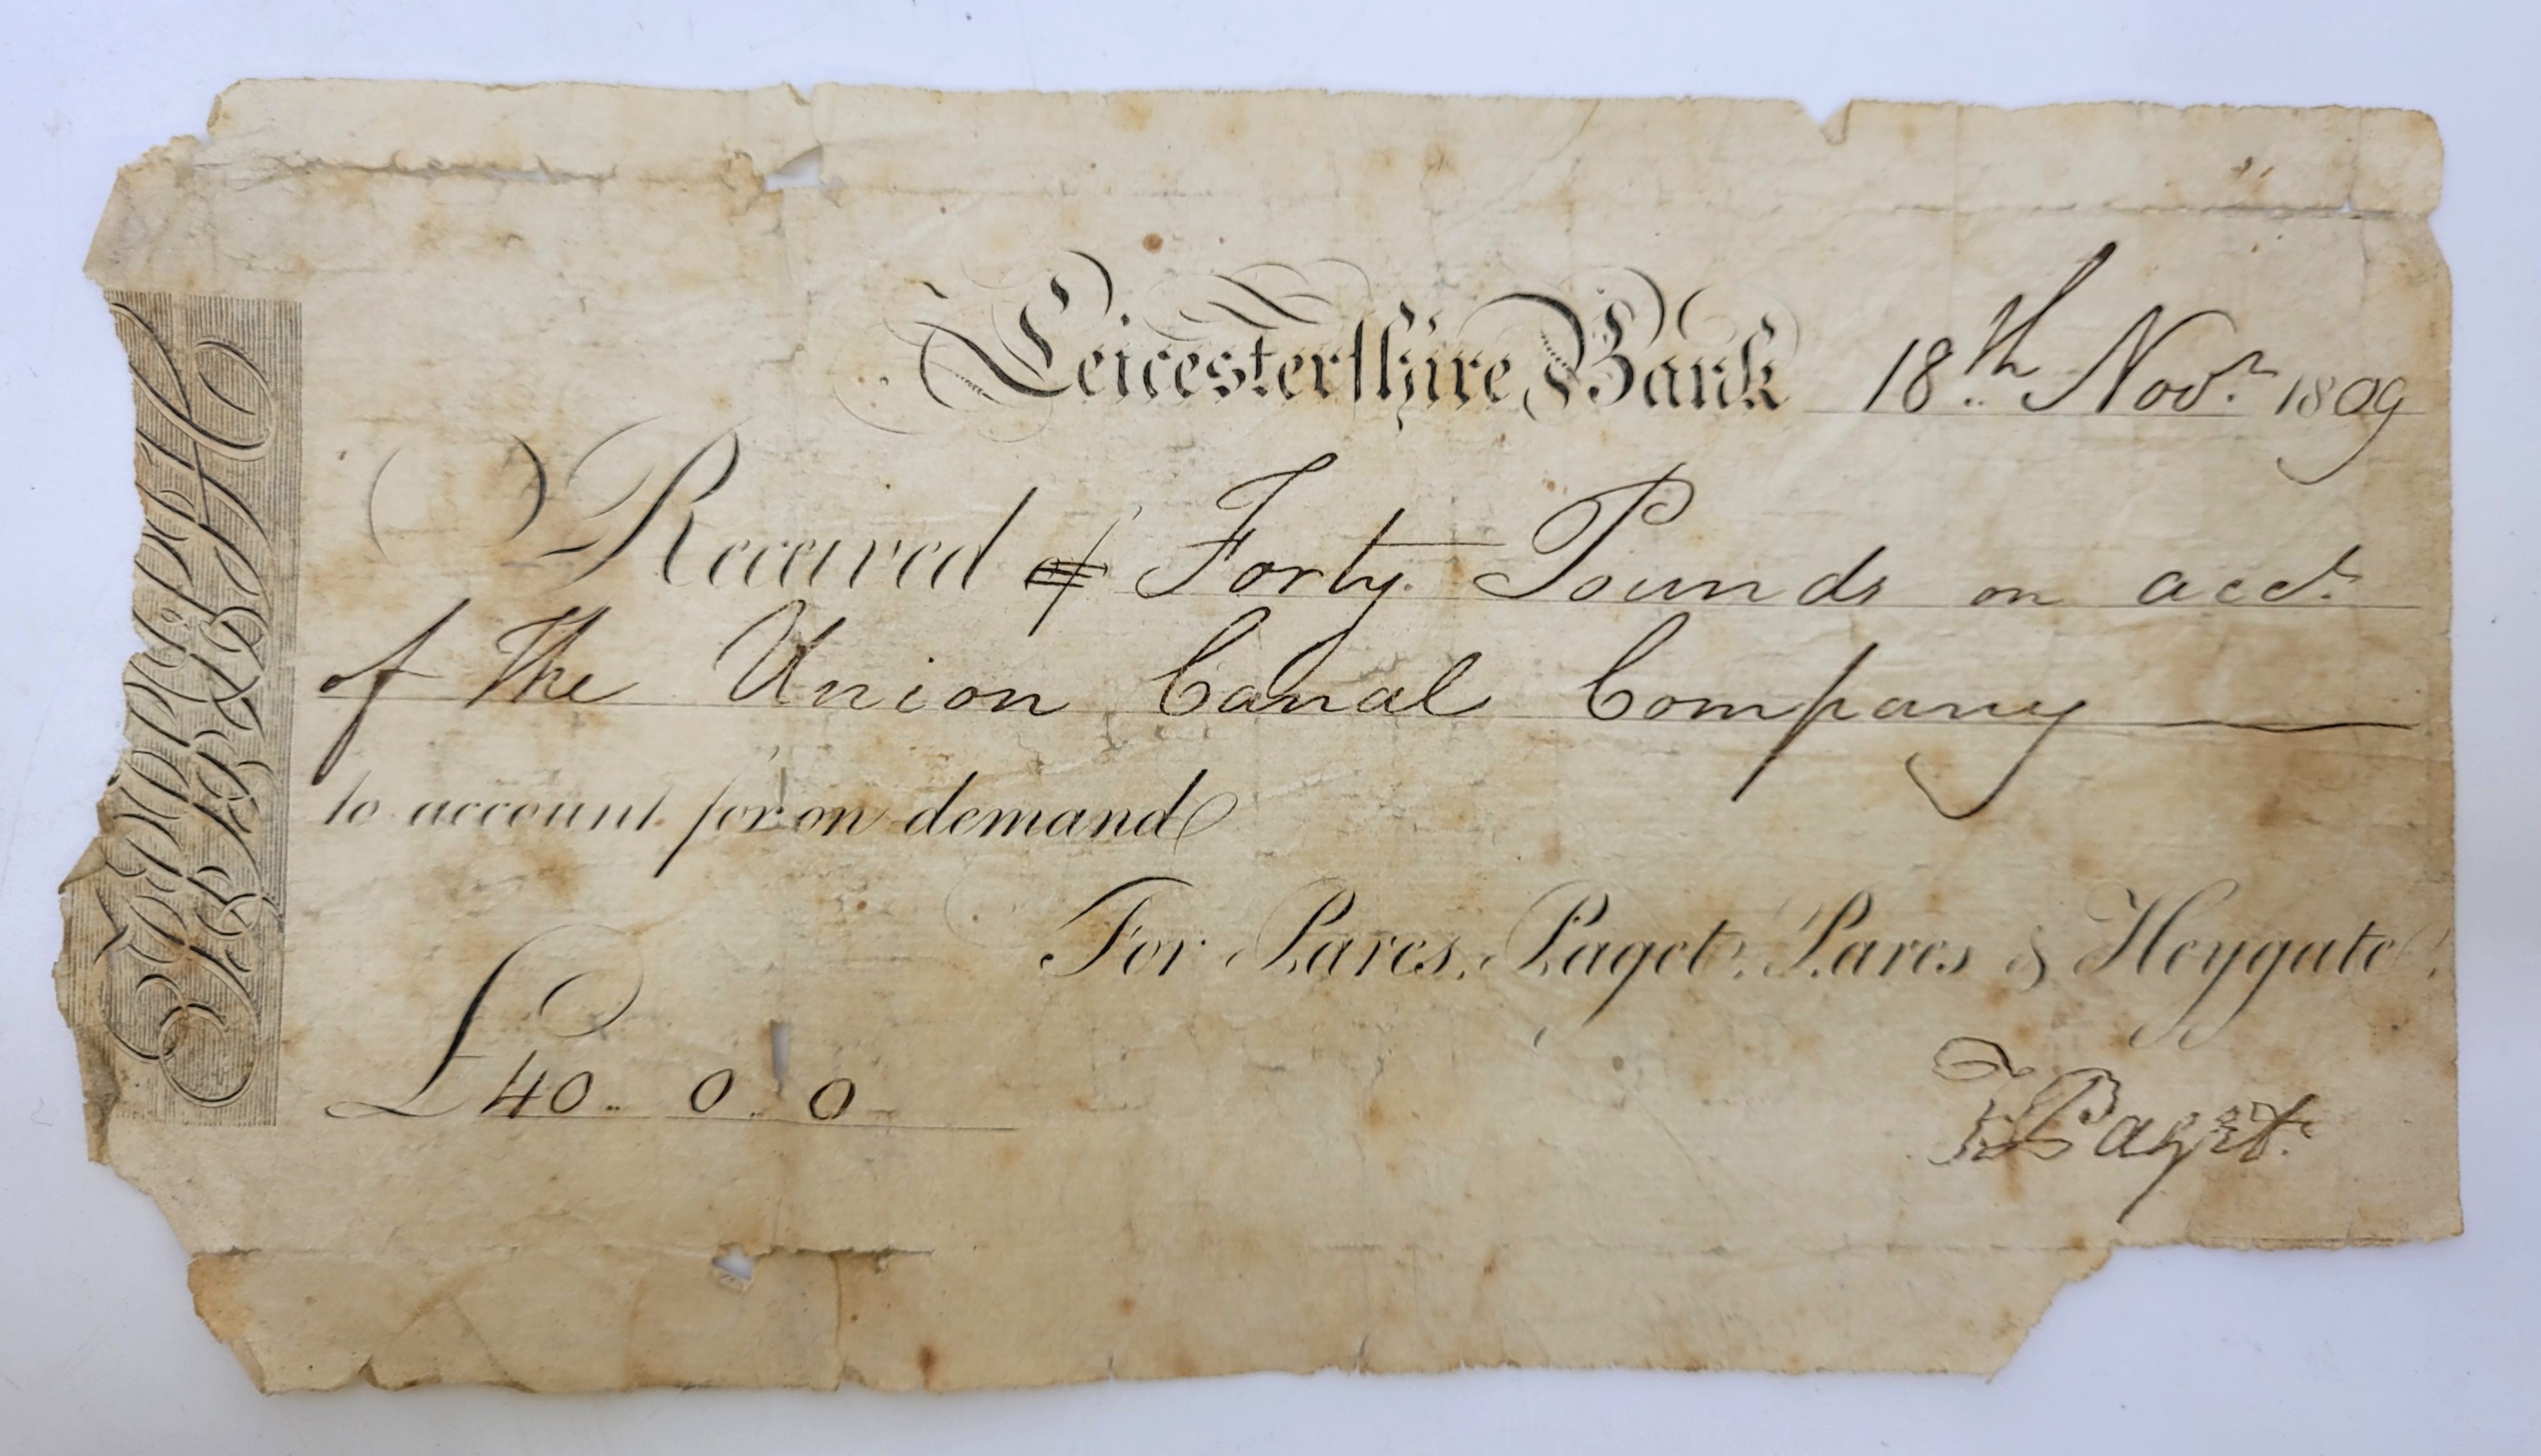 Leicestershire Bank 18th Novr. 1809
Received of Forty Pounds on acct.
of the Union Canal Company
to account for on demand
For Pares, Paget, Pares & Heygate.
£40.. 0.. 0
Paget.